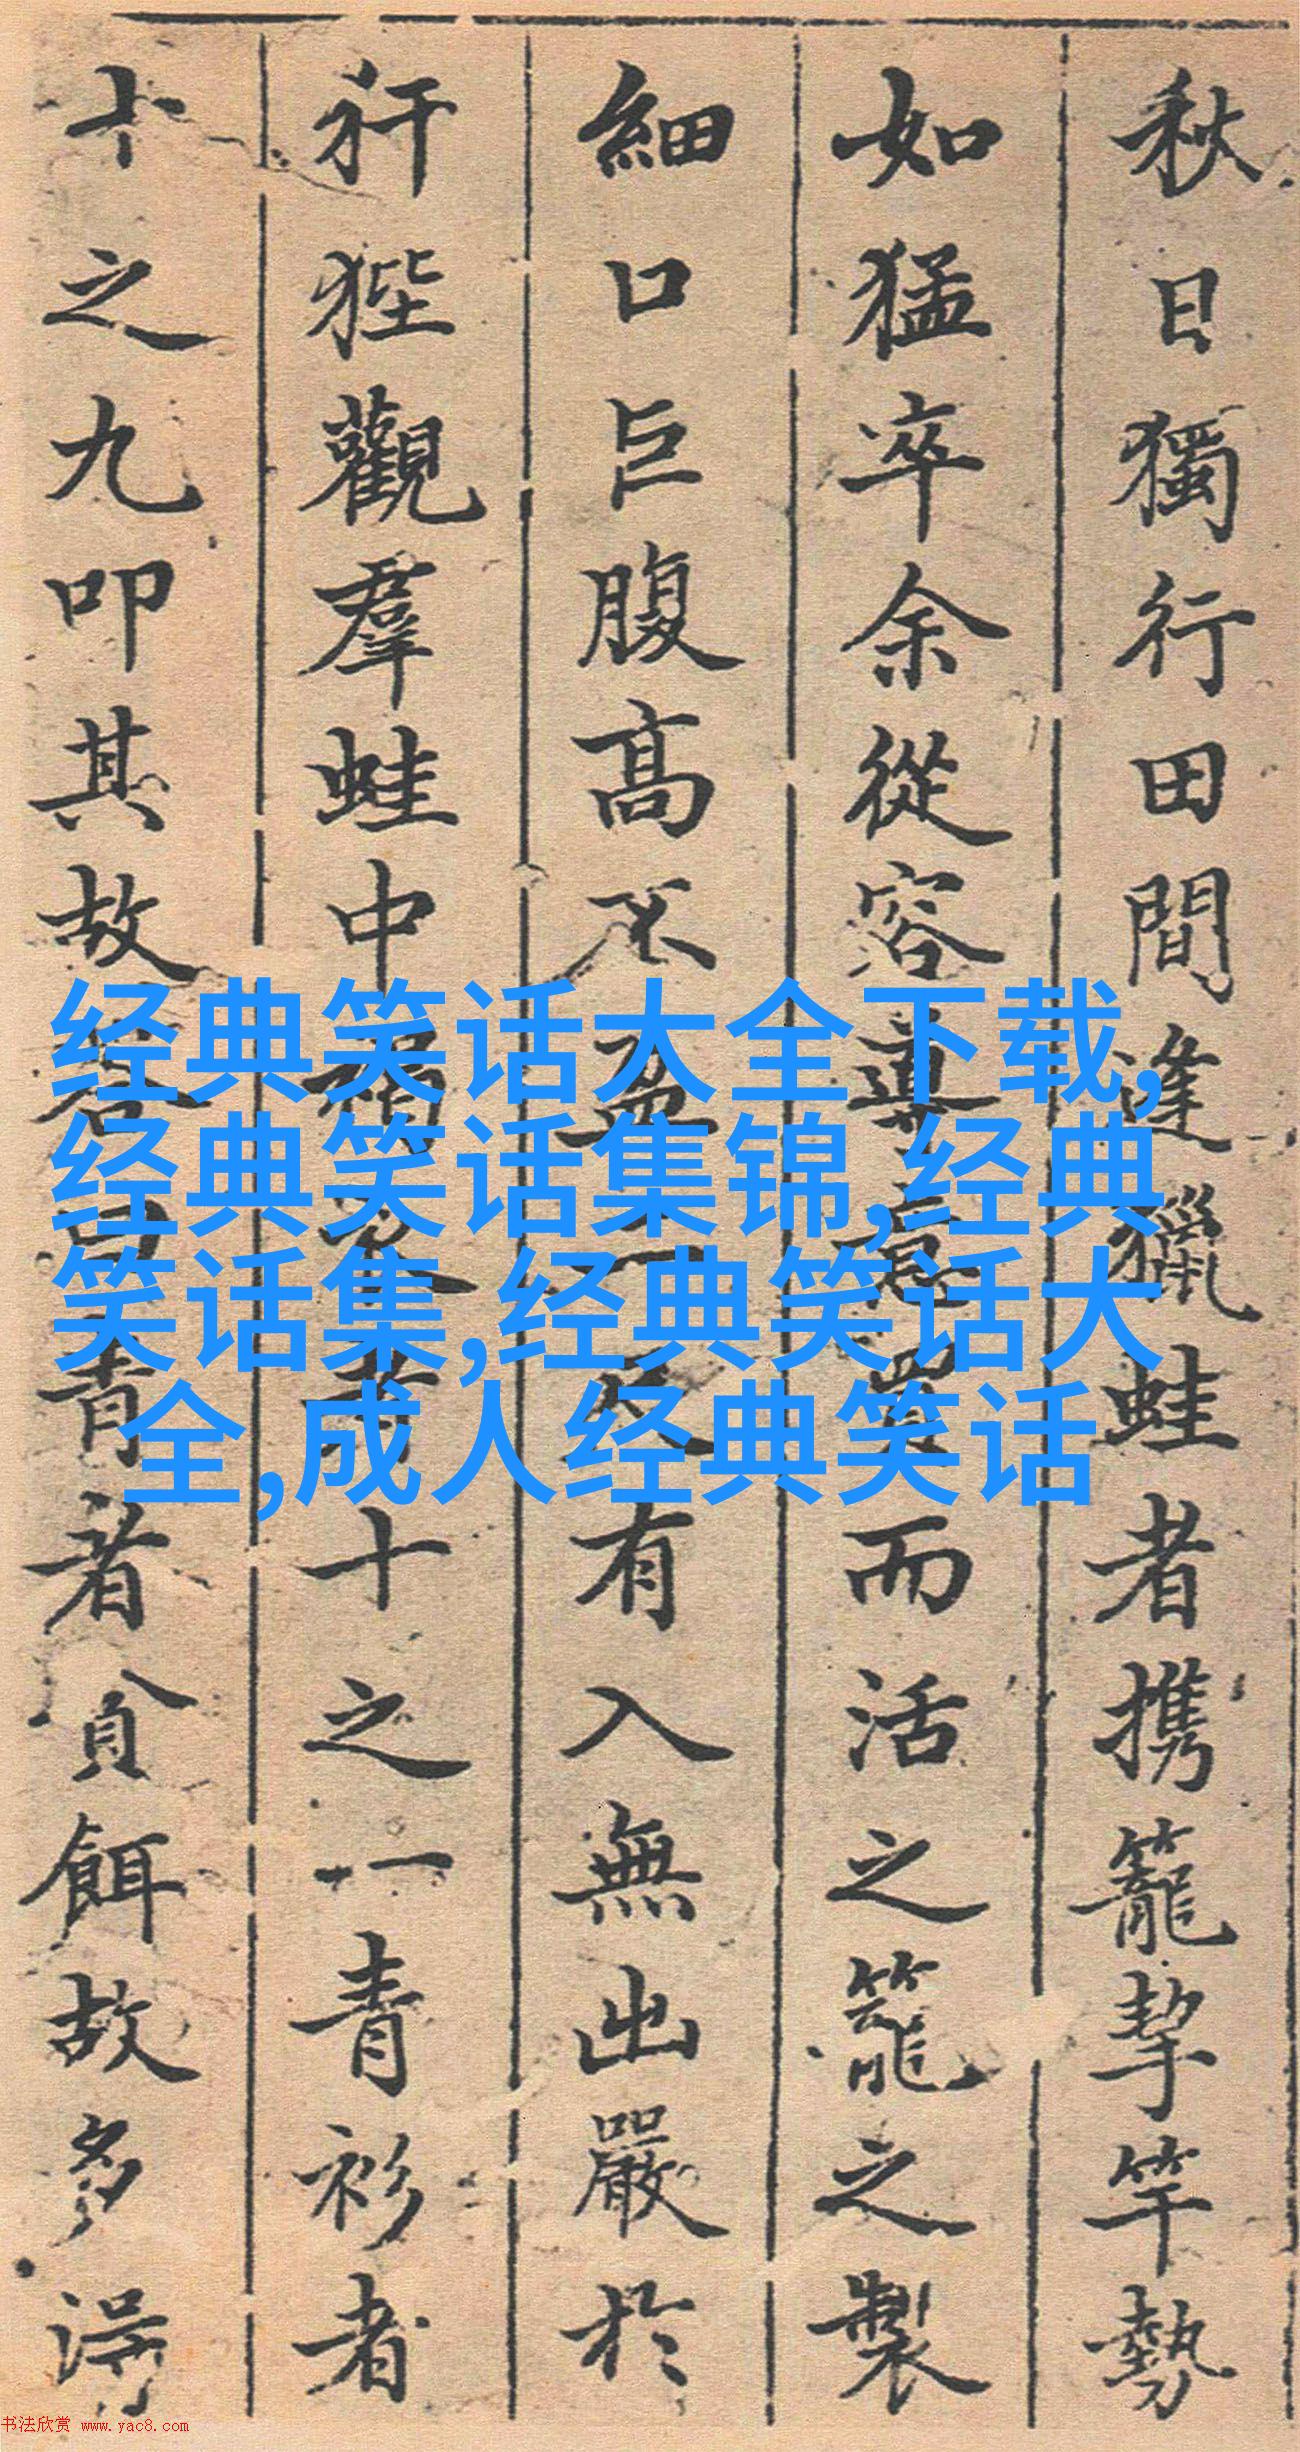 秋日獨行田間逢獵蛙者携籠挈竿勢
如猛卒余從容導意買而活之籠之製
細口巨腹高不盈尺有入無出嚴於
犴狴觀羣蛙中褐衣者十之一青衫者
十之九叩其故答曰青者貪餌故多得
经典笑话大全下载,
经典笑话集锦,经典
笑话集,经典笑话大
全,成人经典笑话
书法欣赏 www.yac8.com